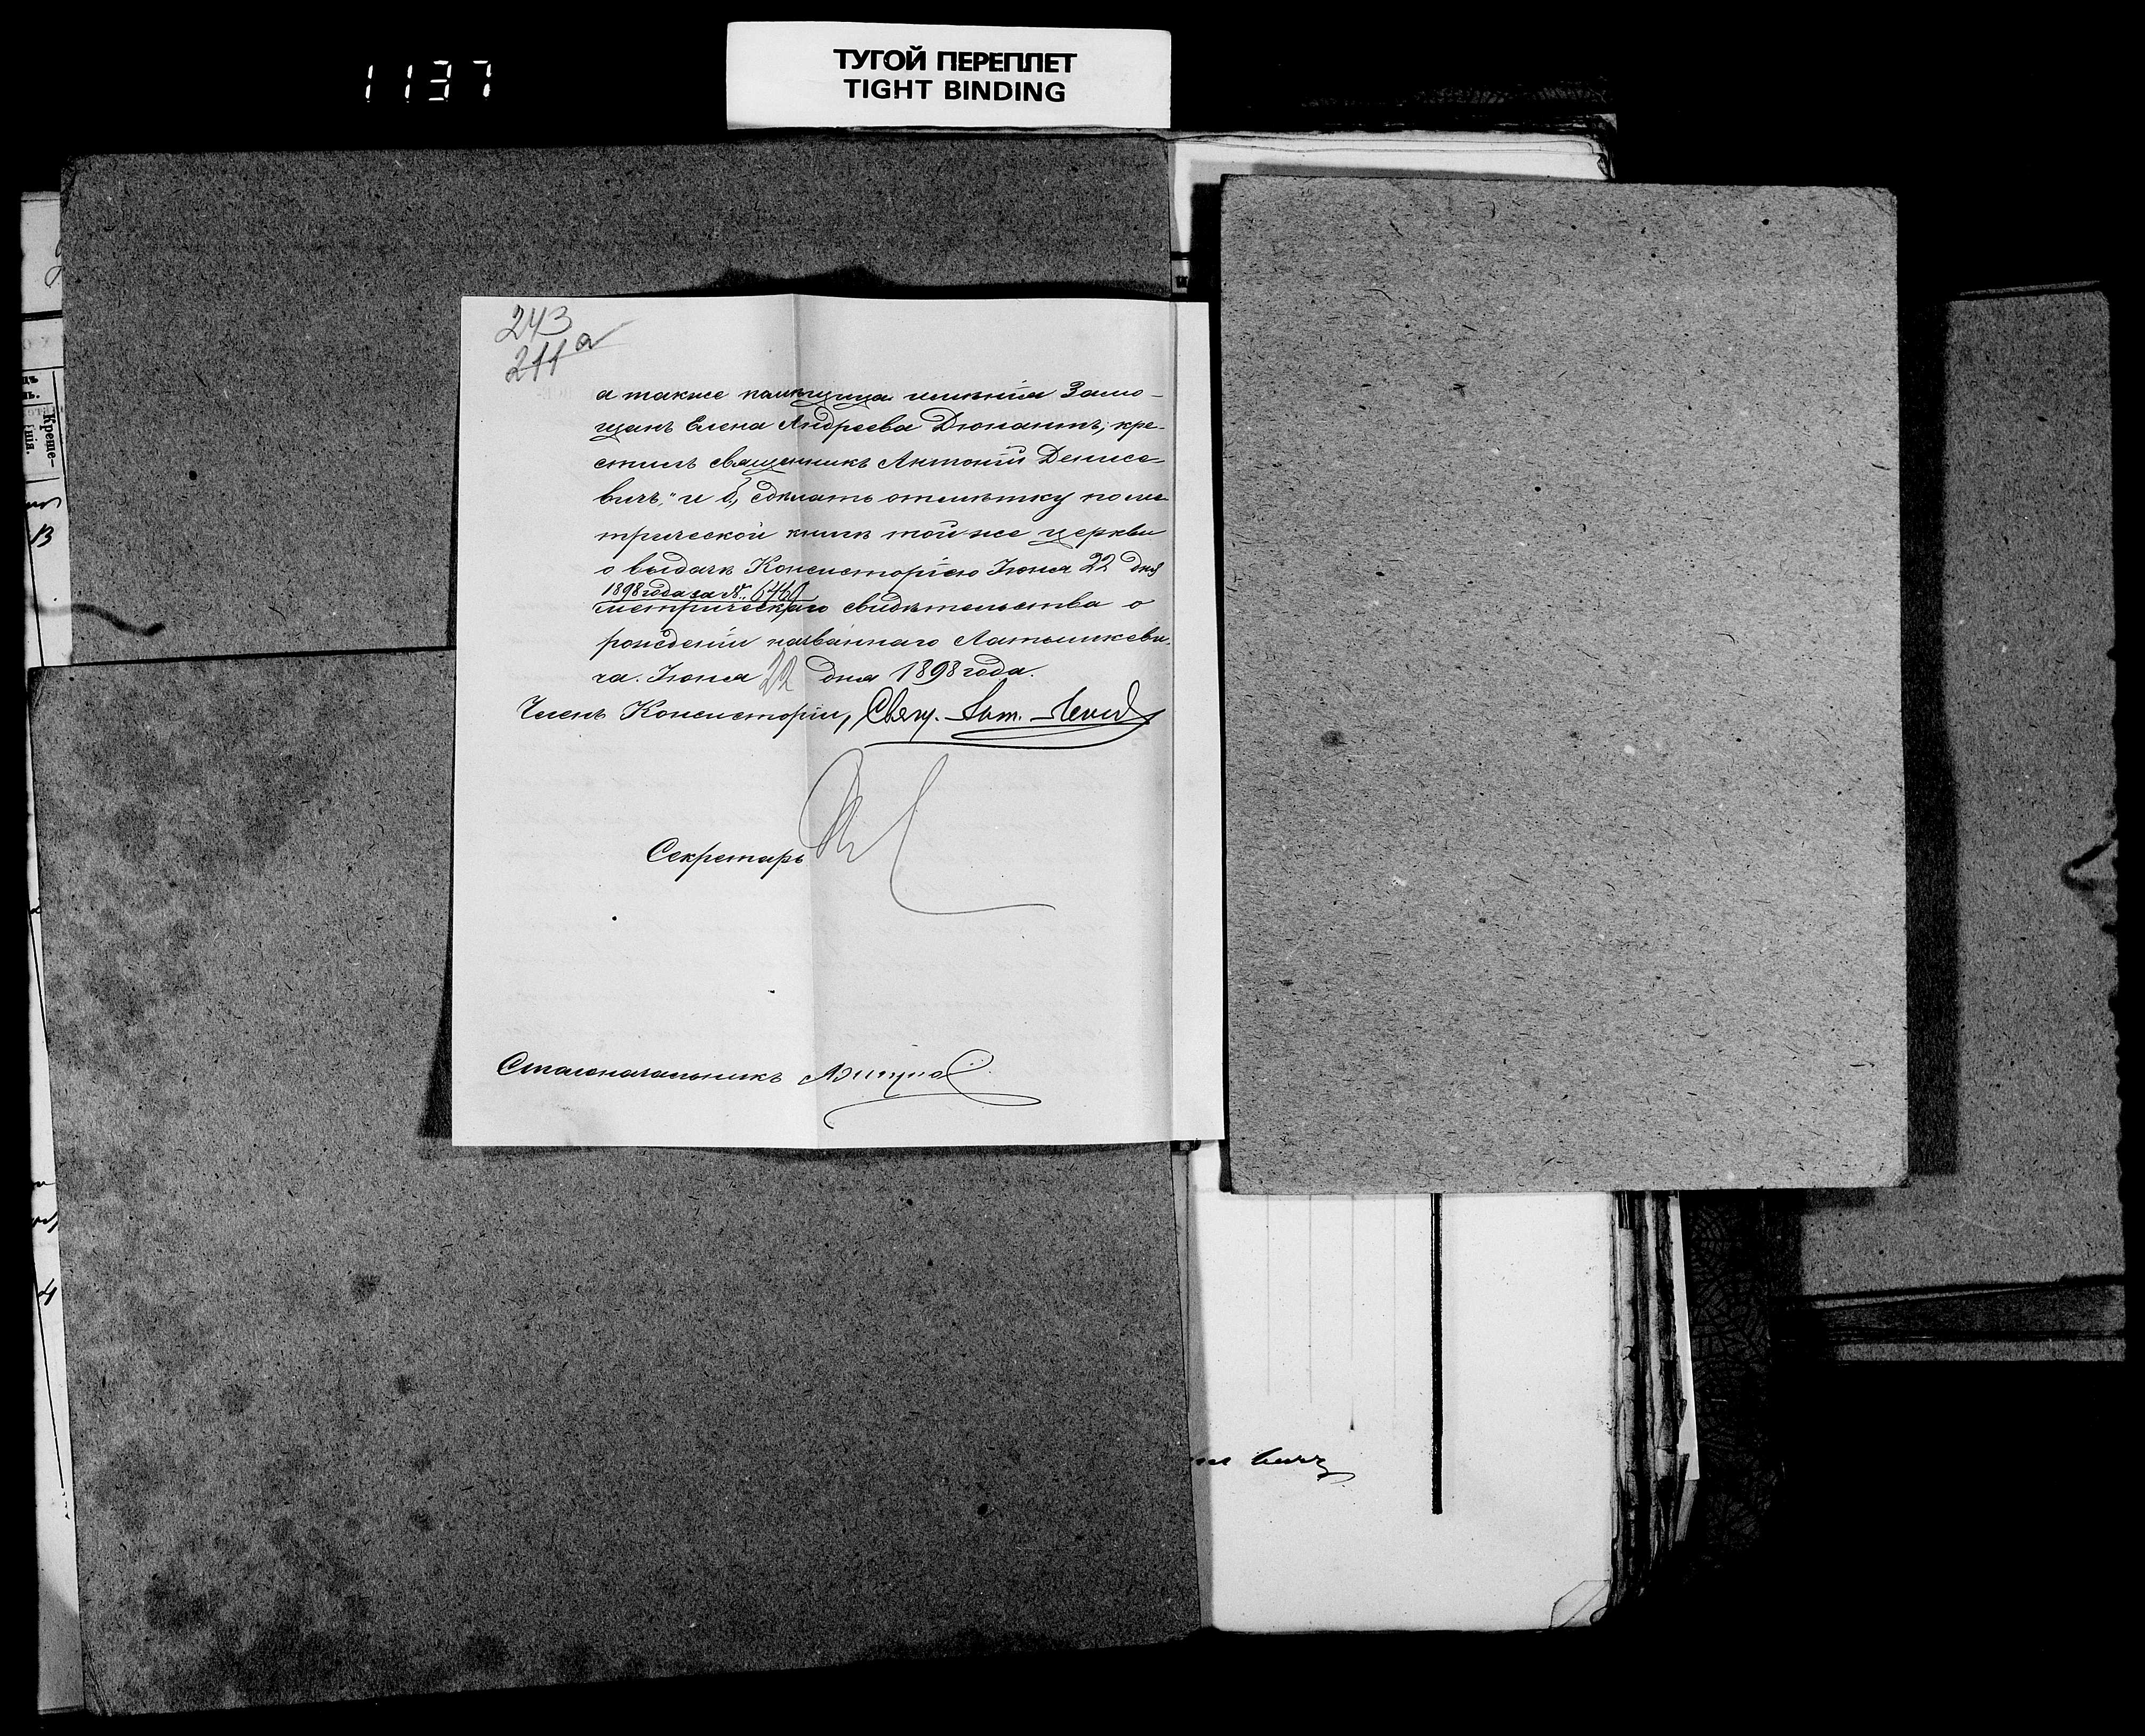 1137
ТУГОЙ ПЕРЕПЛЕТ
TIGHT BINDING
243
211 а
а также помѣщица имѣнія Замо-
щанъ Елена Андреева Дюнантъ; кре-
стилъ священникъ Антоній Денисе-
вичъ," и б, сдѣлать отмѣтку по ме
трической книгѣ той же церкви
о выдачѣ Консисторіею Іюня 22 дня
1898 года за №
метрическаго свидѣтельства о
рожденіи названнаго Латышкеви
ча. Іюня 22 дня 1898 года.
Членъ Консисторіи, Свящ.
Секретарь
Столоначальникъ
Креще-
нія.